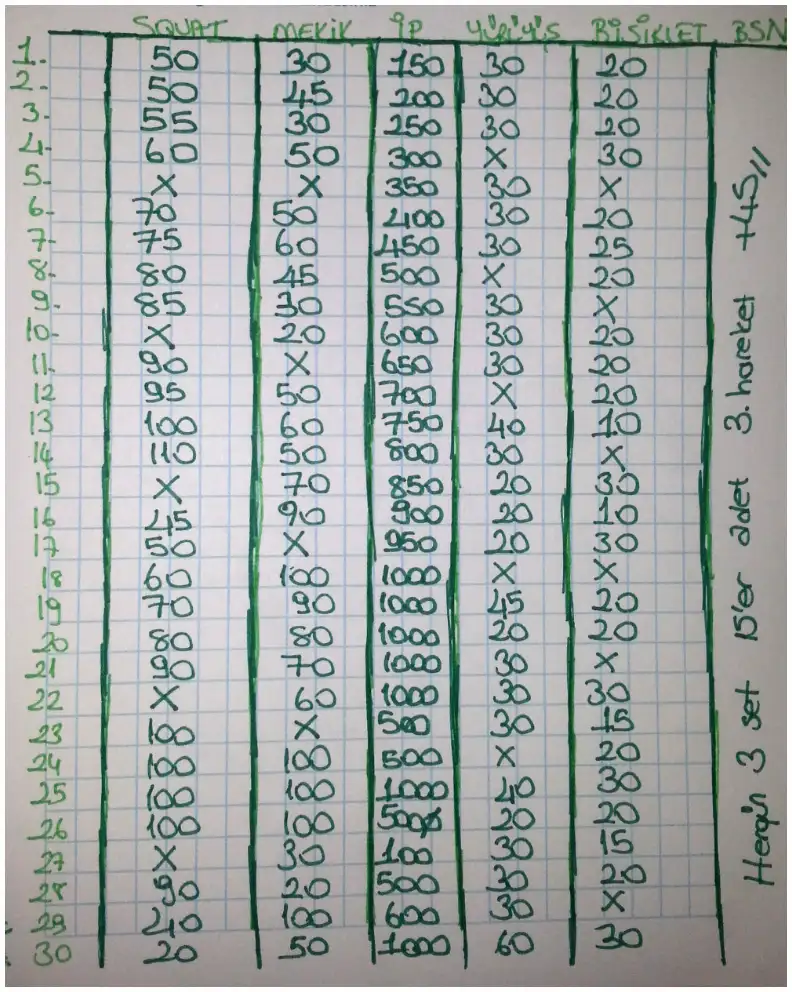 SQUAT MEKİK İP YÜRÜYÜŞ BİSİKLET BSN
1. 50 30 150 30 20
2. 50 45 200 30 20
3. 55 30 250 30 20
4. 60 50 300 X 30
5. X X 350 30 X
6. 70 50 400 30 20
7. 75 60 450 30 25
8. 80 45 500 X 20
9. 85 30 550 30 X
10. X 20 600 30 20
11. 90 X 650 30 20
12 95 50 700 X 20
13 100 60 750 40 10
14 110 50 800 30 X
15 X 70 850 20 30
16 45 90 900 20 10
17 50 X 950 20 30
18 60 100 1000 X X
19 70 90 1000 45 20
20 80 80 1000 20 20
21 90 70 1000 30 X
22 X 60 1000 30 30
23 100 X 500 30 15
24 100 100 500 X 20
25 100 100 1000 40 30
26 100 100 500 20 20
27 X 30 100 30 15
28 90 20 500 30 20
29 40 100 600 30 X
30 20 50 1000 60 30
Hergün 3 set 15'er adet 3. hareket +45,,